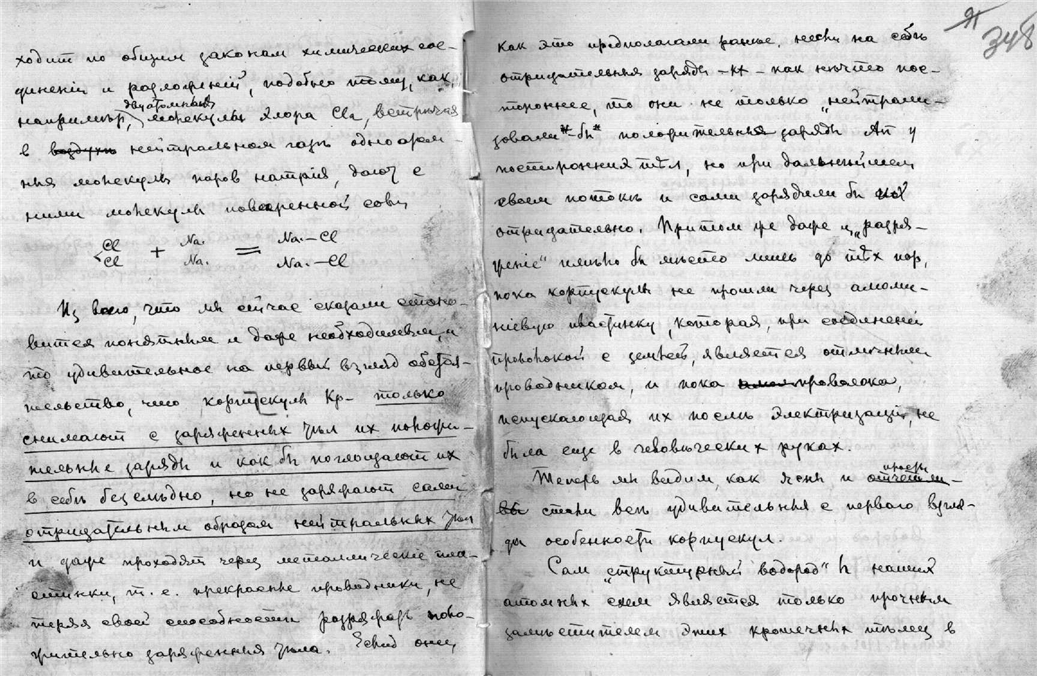 ходит по общим законам химических сое-
динений и разложений, подобно тому, как,
двуатомныя
например, молекулы хлора Cl₂, встречая
в воздухе нейтральном газе одноатом-
ныя молекулы паров натрия, дают с
ними молекулы поваренной соли
Cl Na. Na.—Cl
< + =
Cl Na. Na.—Cl
Из всего, что мы сейчас сказали стано-
вится понятным и даже необходимым, и
то удивительное на первый взгляд обстоя-
тельство, что корпускулы Кр- только
снимают с заряженных тел их положи-
тельные заряды и как бы поглощают их
в себе бесследно, но не заряжают сами
отрицательным образом нейтральных тел
и даже проходят через металлические пла-
стинки, т. е. прекрасные проводники, не
теряя своей способности разряжать поло-
жительно заряженныя тела. Если они,
348
как это предполагали раньше, несли на себе
отрицательныя заряды как нечто пос-
тороннее, то они не только „нейтрали-
зовали" бы положительныя заряды Ап у
посторонних тел, но при дальнейшем
своем потоке и сами зарядили бы их
отрицательно. Притом же даже и „разря-
жение" имело бы место лишь до тех пор,
пока корпускулы не прошли через алюми-
ниевую пластинку, которая, при соединении
проволокой с землей, является отличным
проводником, и пока проволока,
испускающая их после электризации, не
была еще в человеческих руках.
Теперь мы видим, как ясны и
стали все удивительныя с первого взгля-
да особенности корпускул.
Сам „структурный водород" h нашей
атомных схем является только прочным
заместителем этих крошечных телец в